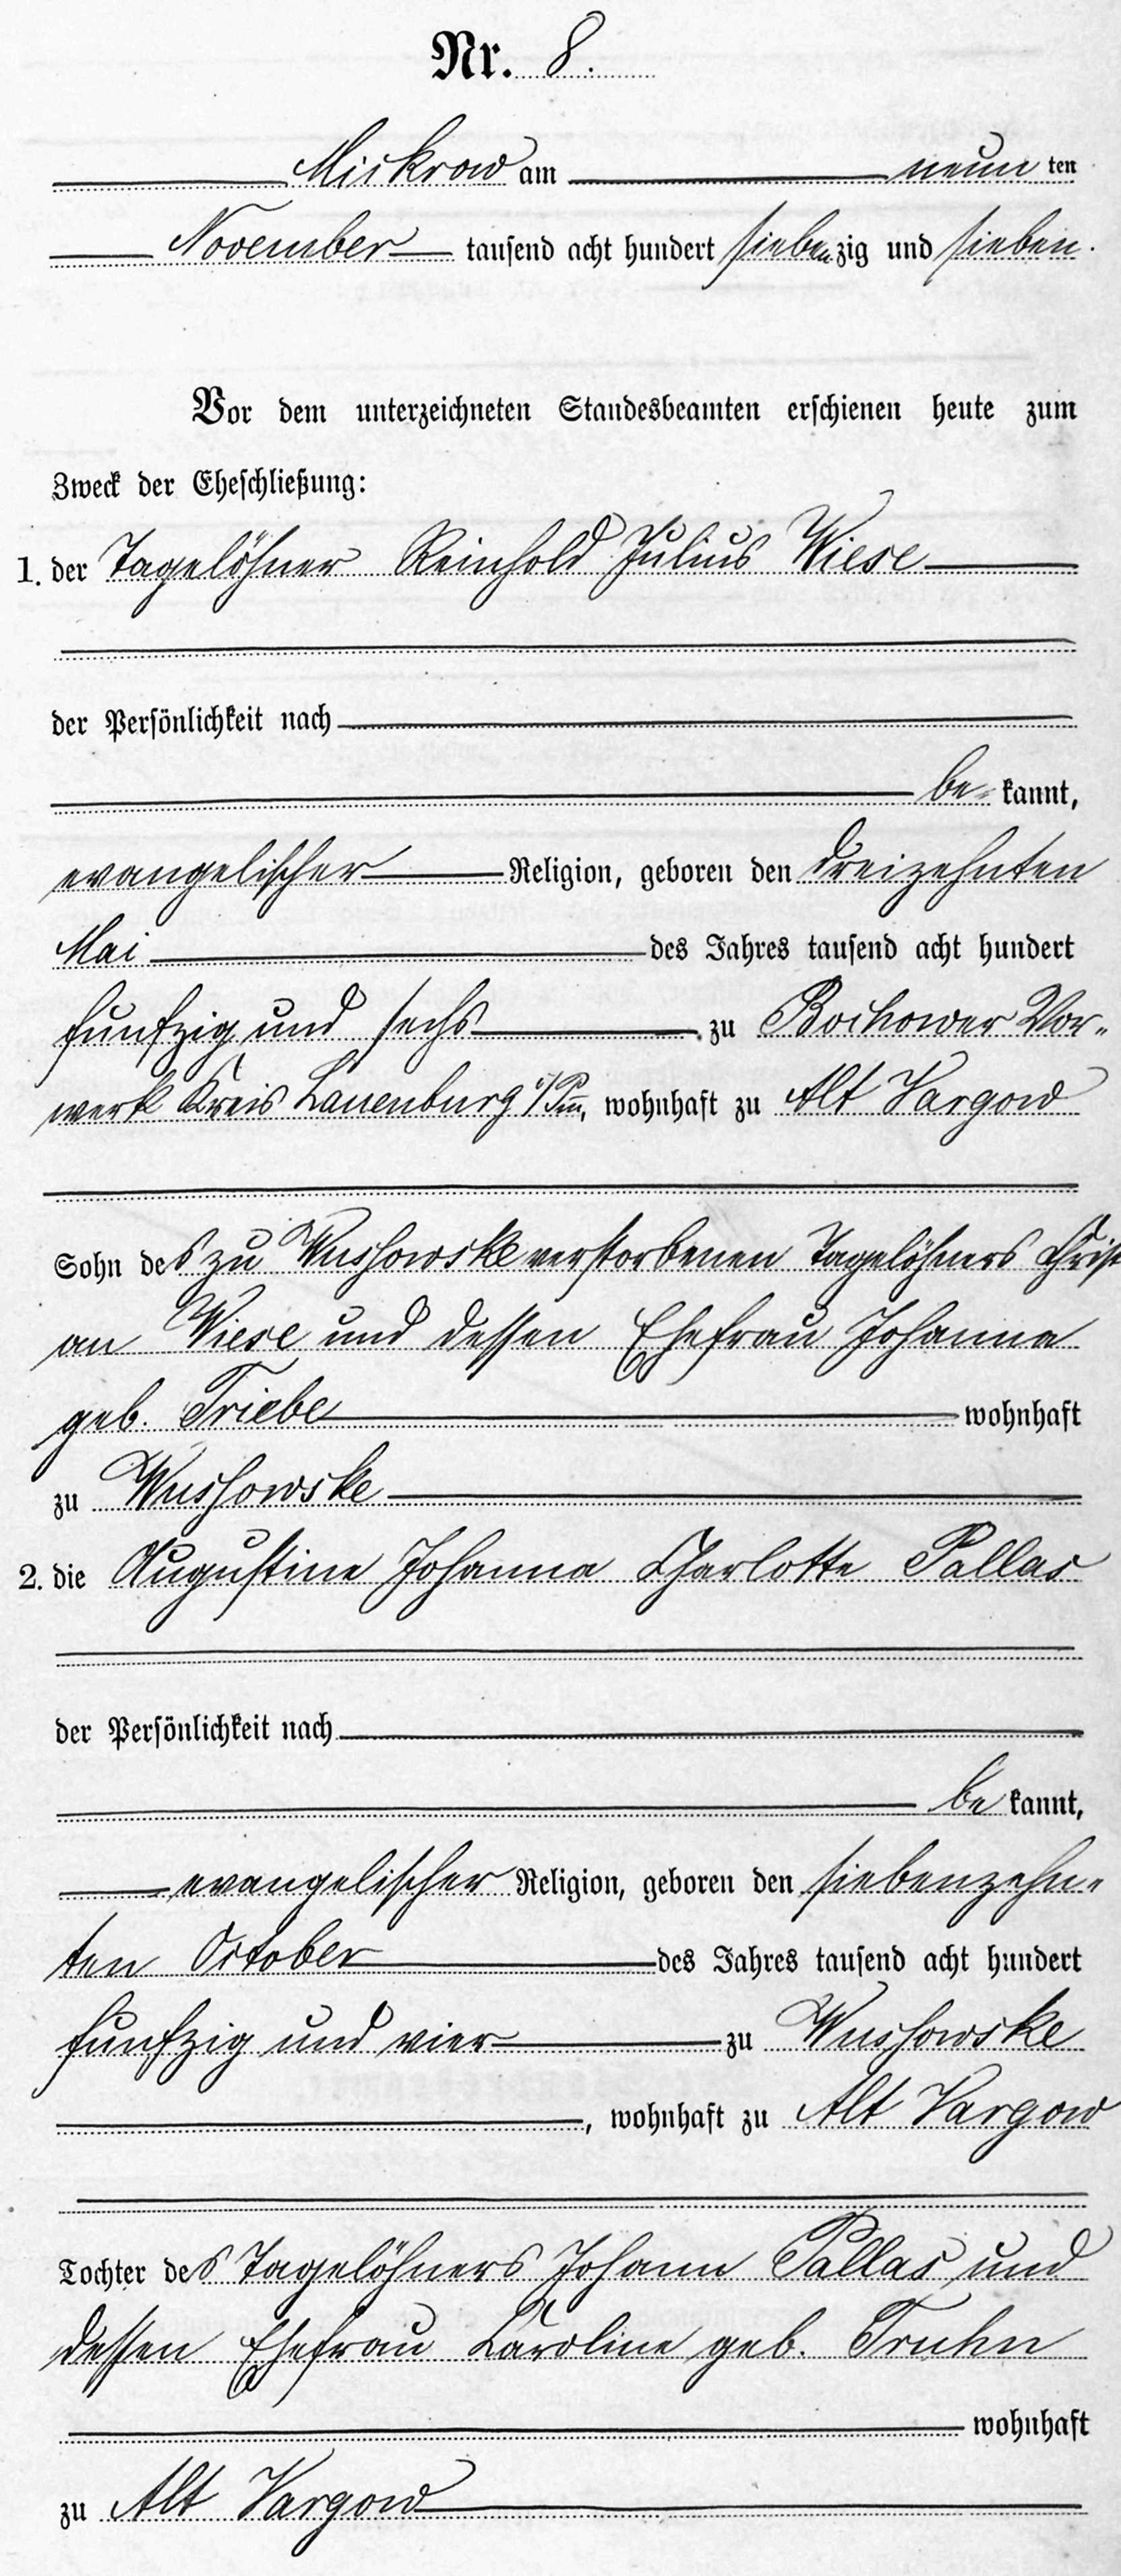 Nr. 8.
Mickrow am neun ten
November tausend acht hundert siebenzig und sieben.
Vor dem unterzeichneten Standesbeamten erschienen heute zum
Zweck der Eheschließung:
1. der Tagelöhner Reinhold Julius Wiese
der Persönlichkeit nach
be- kannt,
evangelischer Religion, geboren den dreizehnten
Mai des Jahres tausend acht hundert
funfzig und sechs zu Bochower Vor-
werk Kreis Lauenburg i/Pm, wohnhaft zu Alt Vargow
Sohn des zu Wussowske verstorbenen Tagelöhners Christ
an Wiese und dessen Ehefrau Johanna
geb. Triebe wohnhaft
zu Wussowske
2. die Augustine Johanna Charlotte Pallas
der Persönlichkeit nach
be kannt,
evangelischer Religion, geboren den siebenzehn-
ten October des Jahres tausend acht hundert
funfzig und vier zu Wussowske
, wohnhaft zu Alt Vargow
Tochter des Tagelöhners Johann Pallas und
dessen Ehefrau Caroline geb. Truhn
wohnhaft
zu Alt Vargow